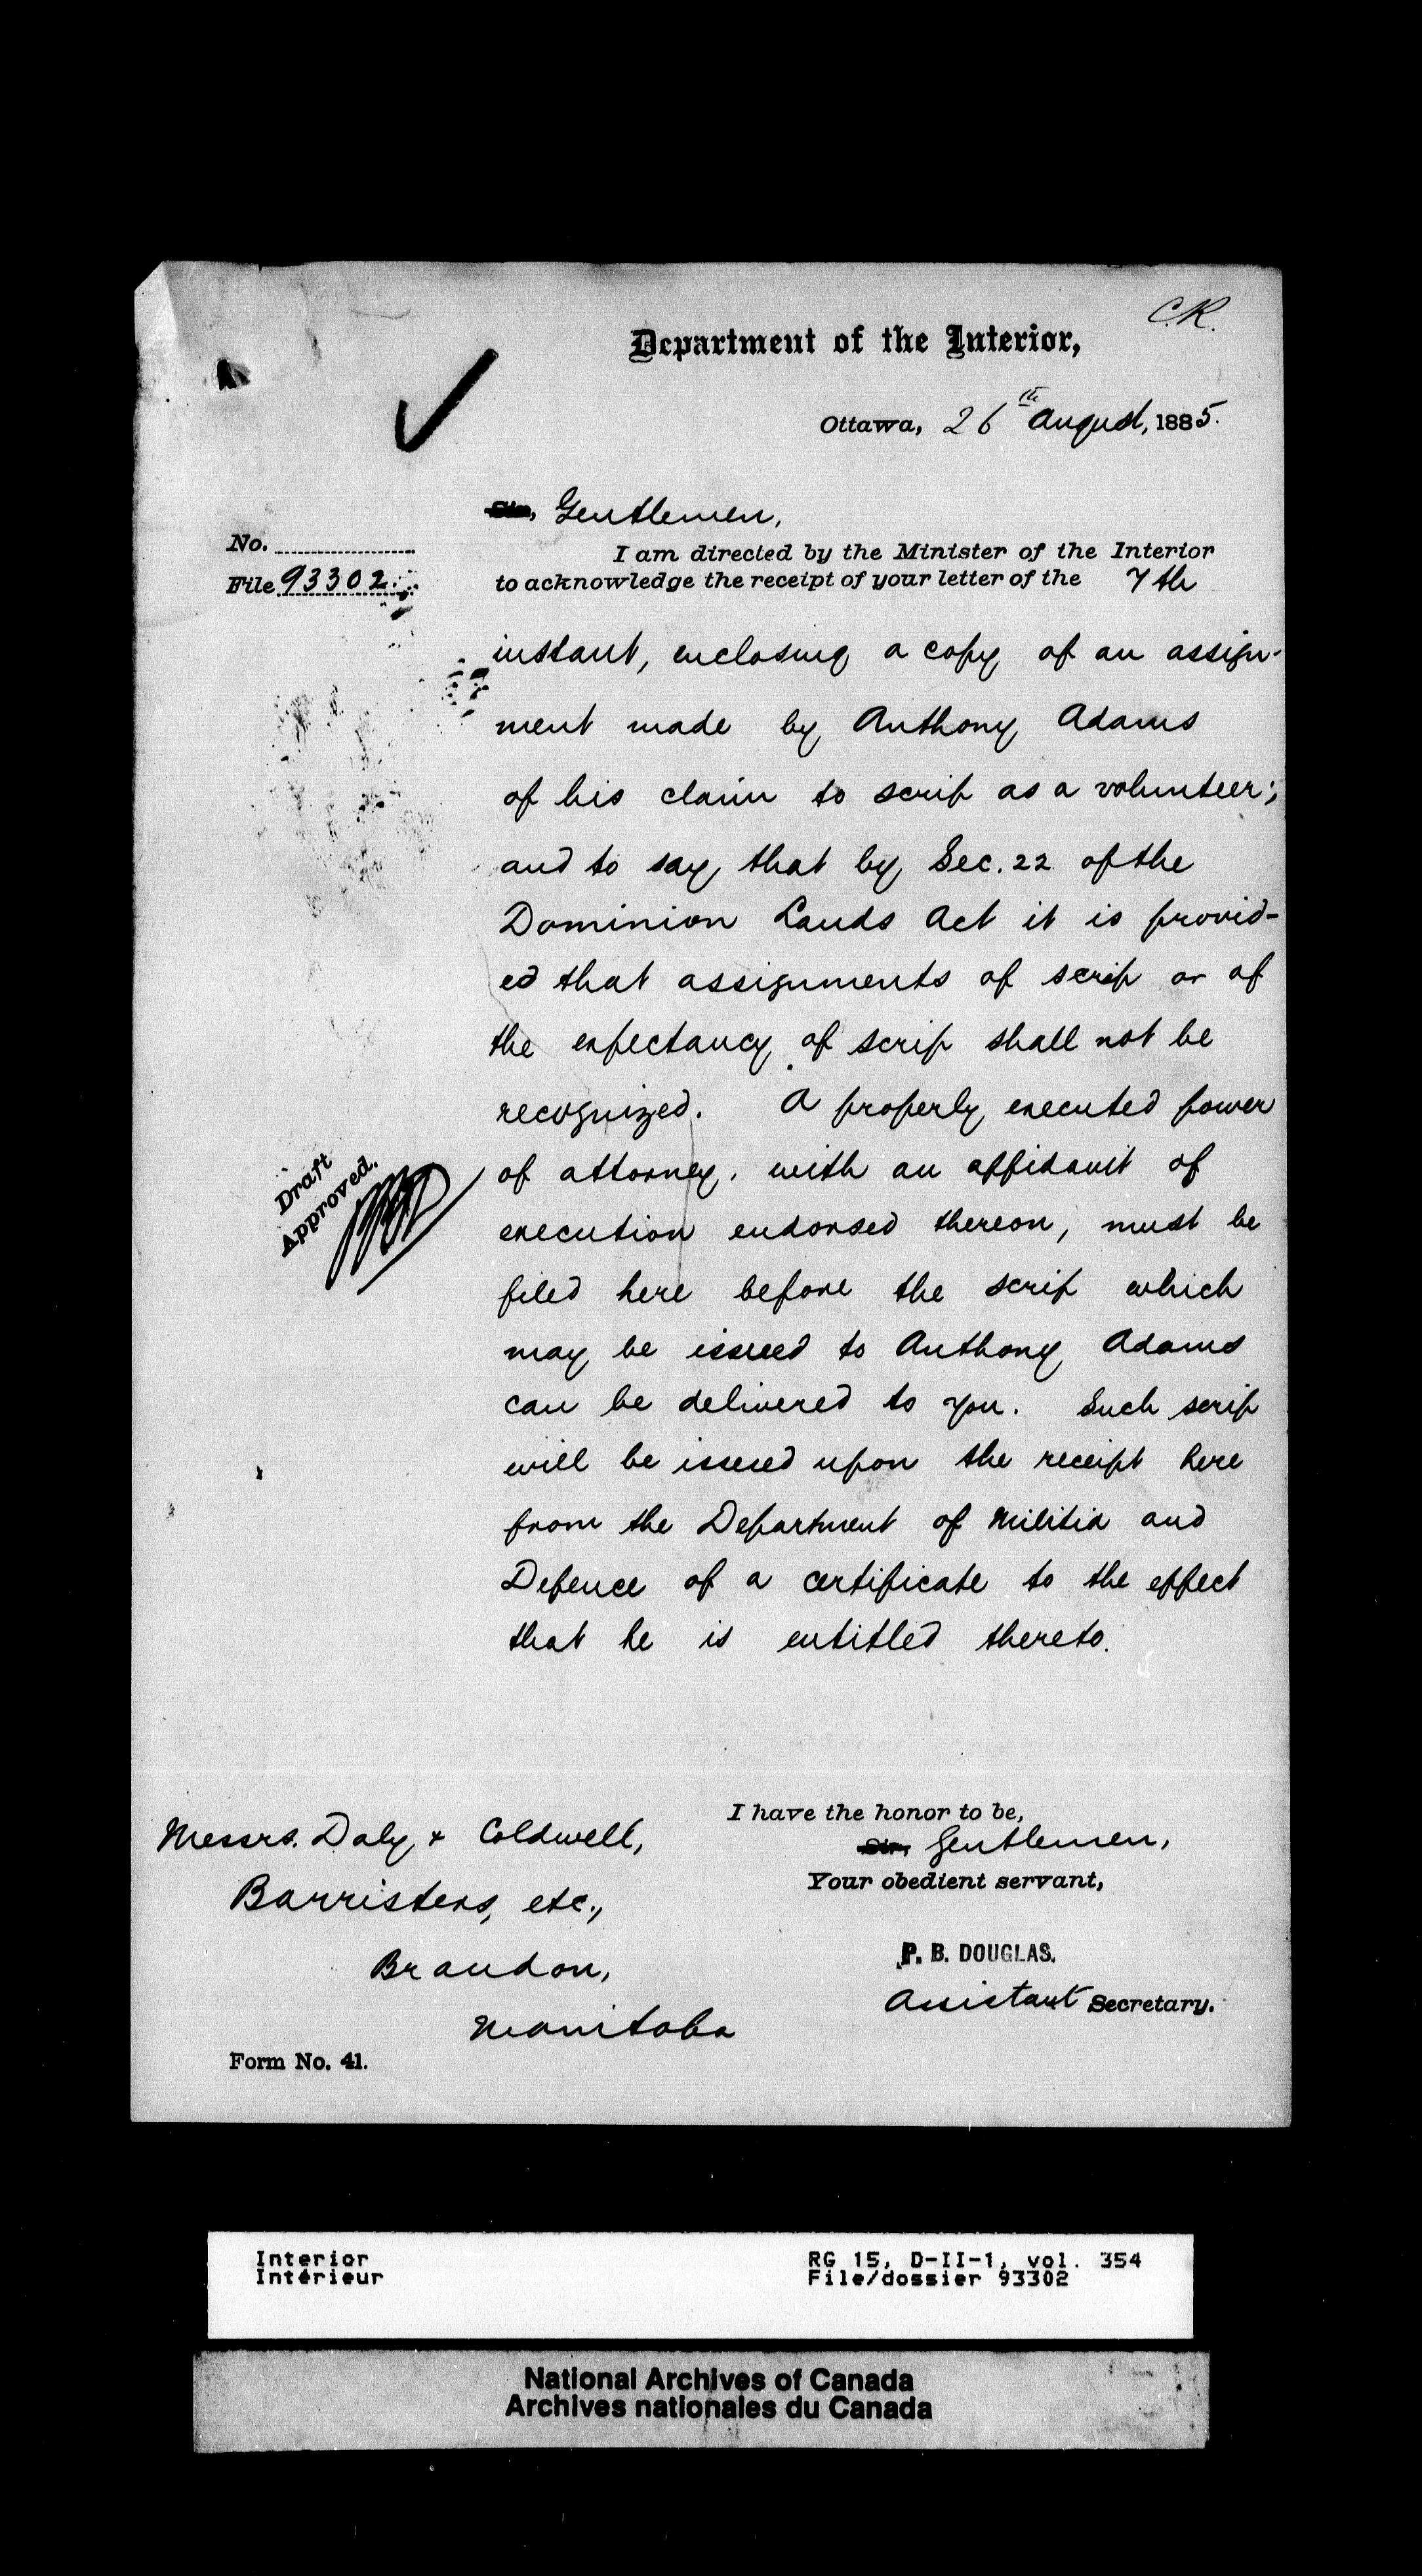 C.R.
Department of the Interior,
Ottawa, 26th August, 1885.
Sir, Gentlemen,
No.
File 93302.
I am directed by the Minister of the Interior
to acknowledge the receipt of your letter of the 7th
instant, enclosing a copy of an assign-
ment made by Anthony Adams
of his claim to scrip as a volunteer;
and to say that by Sec. 22 of the
Dominion Lands Act it is provid-
ed that assignments of scrip or of
the expectancy of scrip shall not be
recognized. A properly executed power
of attorney, with an affidavit of
execution endorsed thereon, must be
filed here before the scrip which
may be issued to Anthony Adams
can be delivered to you. Such scrip
will be issued upon the receipt here
from the Department of Militia and
Defence of a certificate to the effect
that he is entitled thereto.
Draft
Approved.
I have the honor to be,
Sir, Gentlemen,
Your obedient servant,
P. B. DOUGLAS.
Assistant Secretary.
Messrs. Daly & Coldwell,
Barristers, etc.,
Brandon,
Manitoba
Form No. 41.
Interior
Intérieur
RG 15, D-II-1, vol. 354
File/dossier 93302
National Archives of Canada
Archives nationales du Canada